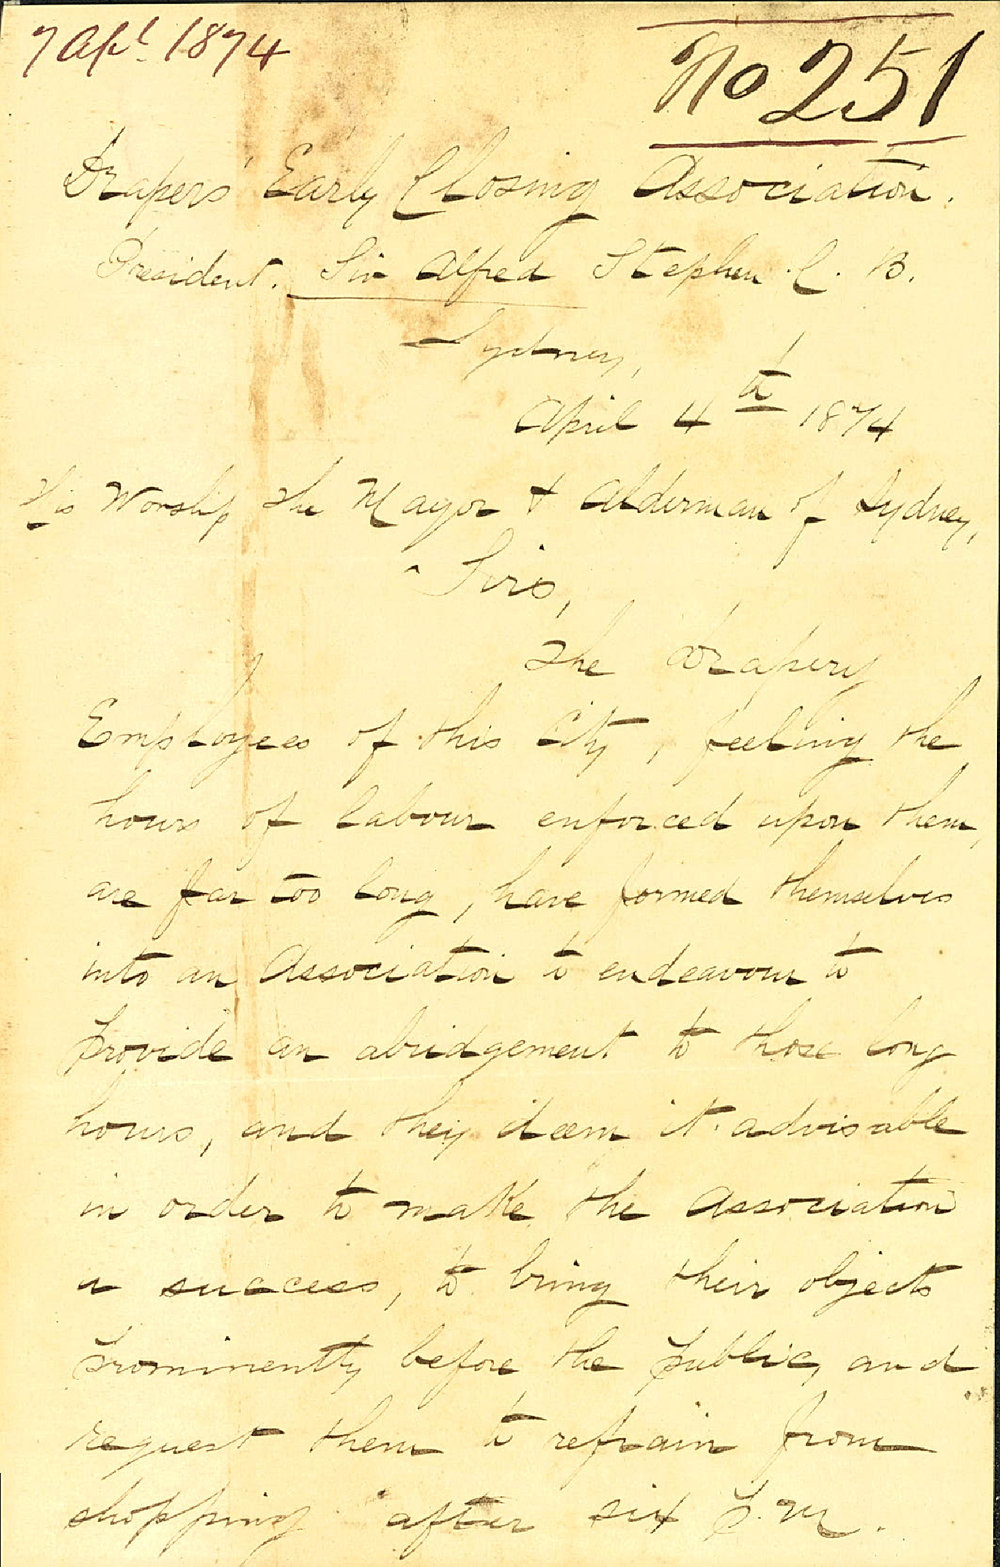 7 Apl 1874
No 251
Drapers' Early Closing Association.
President. Sir Alfred Stephen C. B.
Sydney,
April 4th 1874
His Worship the Mayor & Alderman of Sydney,
Sirs,
The Drapery
Employees of this City, feeling the
hours of labour enforced upon them,
are far too long, have formed themselves
into an Association to endeavour to
provide an abridgement to those long
hours, and they deem it advisable
in order to make the Association
a success, to bring their objects
prominently before the public, and
request them to refrain from
shopping after six P.M.